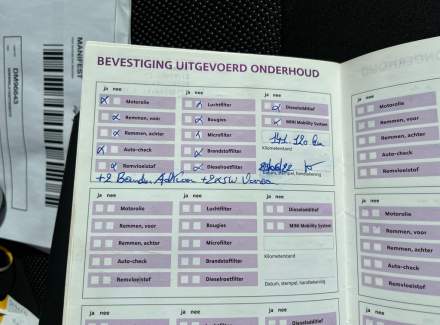 MANIFEST
DM96643
BEVESTIGING UITGEVOERD ONDERHOUD
ja nee ja nee ja nee
Motorolie Luchtfilter Dieseladditief
Remmen, voor Bougies MINI Mobility System
Remmen, achter Microfilter
Auto-check Brandstoffilter Kilometerstand
Remvloeistof Dieselroetfilter Datum, stempel, handtekening
ja nee ja nee ja nee
Motorolie Luchtfilter Dieseladditief
Remmen, voor Bougies MINI Mobility System
Remmen, achter Microfilter
Auto-check Brandstoffilter Kilometerstand
Remvloeistof Dieselroetfilter Datum, stempel, handtekening
ja nee ja nee ja nee
Dieseladditief
ja nee
Motorolie
Remmen, voor
Remmen, achter
Auto-check
Remvloeistof
ja nee
Motorolie
Remmen, voor
Remmen, achter
Auto-check
Remvloeistof
ja nee